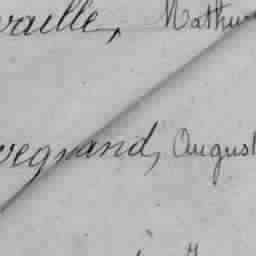 vaille, Mathur
vegrand, August